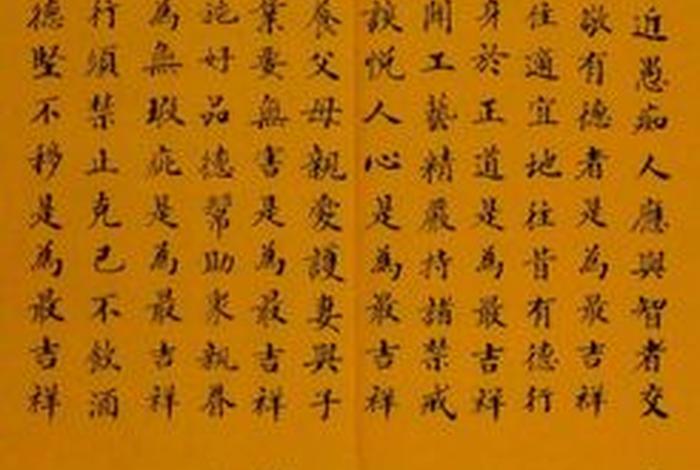 近愚痴人應與智者交
敬有德者是為最吉祥
住適宜地往昔有德行
身於正道是為最吉祥
聞工藝精嚴持諸禁戒
談悅人心是為最吉祥
養父母親愛護妻與子
業要無害是為最吉祥
施好品德幫助眾親眷
為無瑕疵是為最吉祥
行須禁止克己不飲酒
德堅不移是為最吉祥